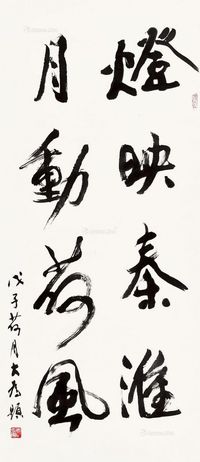 燈映秦淮
月動荷風
戊子荷月大為題